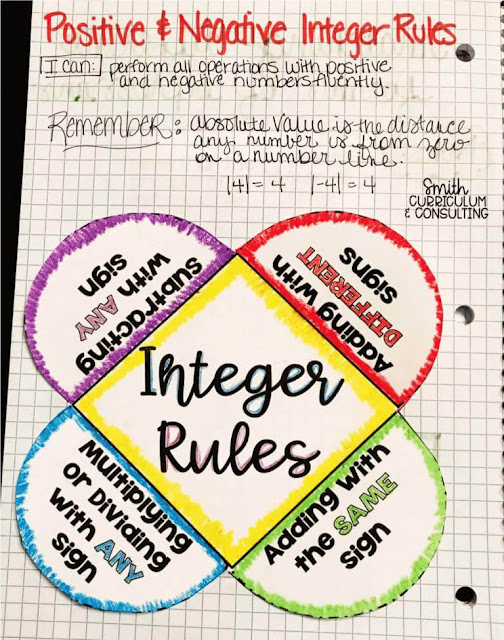 Positive & Negative Integer Rules
I can: perform all operations with positive
and negative numbers fluently.
Remember: absolute value is the distance
any number is from zero
on a number line.
|4| = 4 |-4| = 4
Smith
CURRICULUM
& CONSULTING
Subtracting
with ANY
sign
Adding with
DIFFERENT
signs
Integer
Rules
Multiplying
or Dividing
with ANY
sign
Adding with
the SAME
sign